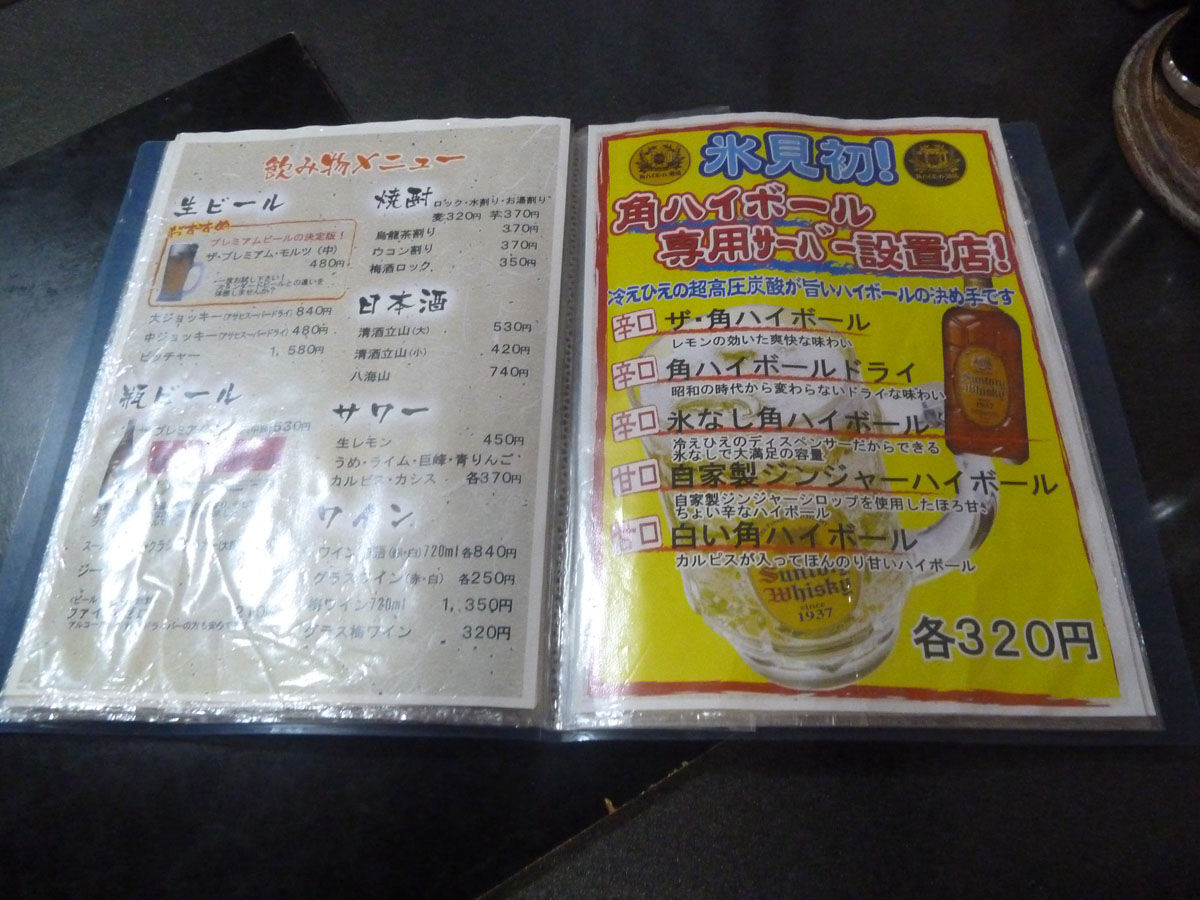 飲み物メニュー
生ビール
おすすめ
プレミアムビールの決定版！
ザ・プレミアム・モルツ（中）
480円
一度お試し下さい！
スタンダードビールとの違いを
体感しませんか？
大ジョッキー(アサヒスーパードライ) 840円
中ジョッキー(アサヒスーパードライ) 480円
ピッチャー 1,580円
瓶ビール
530円
焼酎 ロック・水割り・お湯割り
麦320円 芋370円
烏龍茶割り 370円
ウコン割り 370円
梅酒ロック 350円
日本酒
清酒立山(大) 530円
清酒立山(小) 420円
八海山 740円
サワー
生レモン 450円
うめ・ライム・巨峰・青りんご
カルピス・カシス 各370円
ワイン
ワイン 720ml 各840円
グラスワイン(赤・白) 各250円
梅ワイン720ml 1,350円
グラス梅ワイン 320円
氷見初！
角ハイボール
専用サーバー設置店！
冷えひえの超高圧炭酸が旨いハイボールの決め手です
辛口 ザ・角ハイボール
レモンの効いた爽快な味わい
辛口 角ハイボールドライ
昭和の時代から変わらないドライな味わい
辛口 氷なし角ハイボール
冷えひえのディスペンサーだからできる
氷なしで大満足の容量
甘口 自家製ジンジャーハイボール
自家製ジンジャーシロップを使用したほろ甘、
ちょい辛なハイボール
甘口 白い角ハイボール
カルピスが入ってほんのり甘いハイボール
Suntory
Whisky
since
1937
Suntory
Whisky
since
1937
各320円